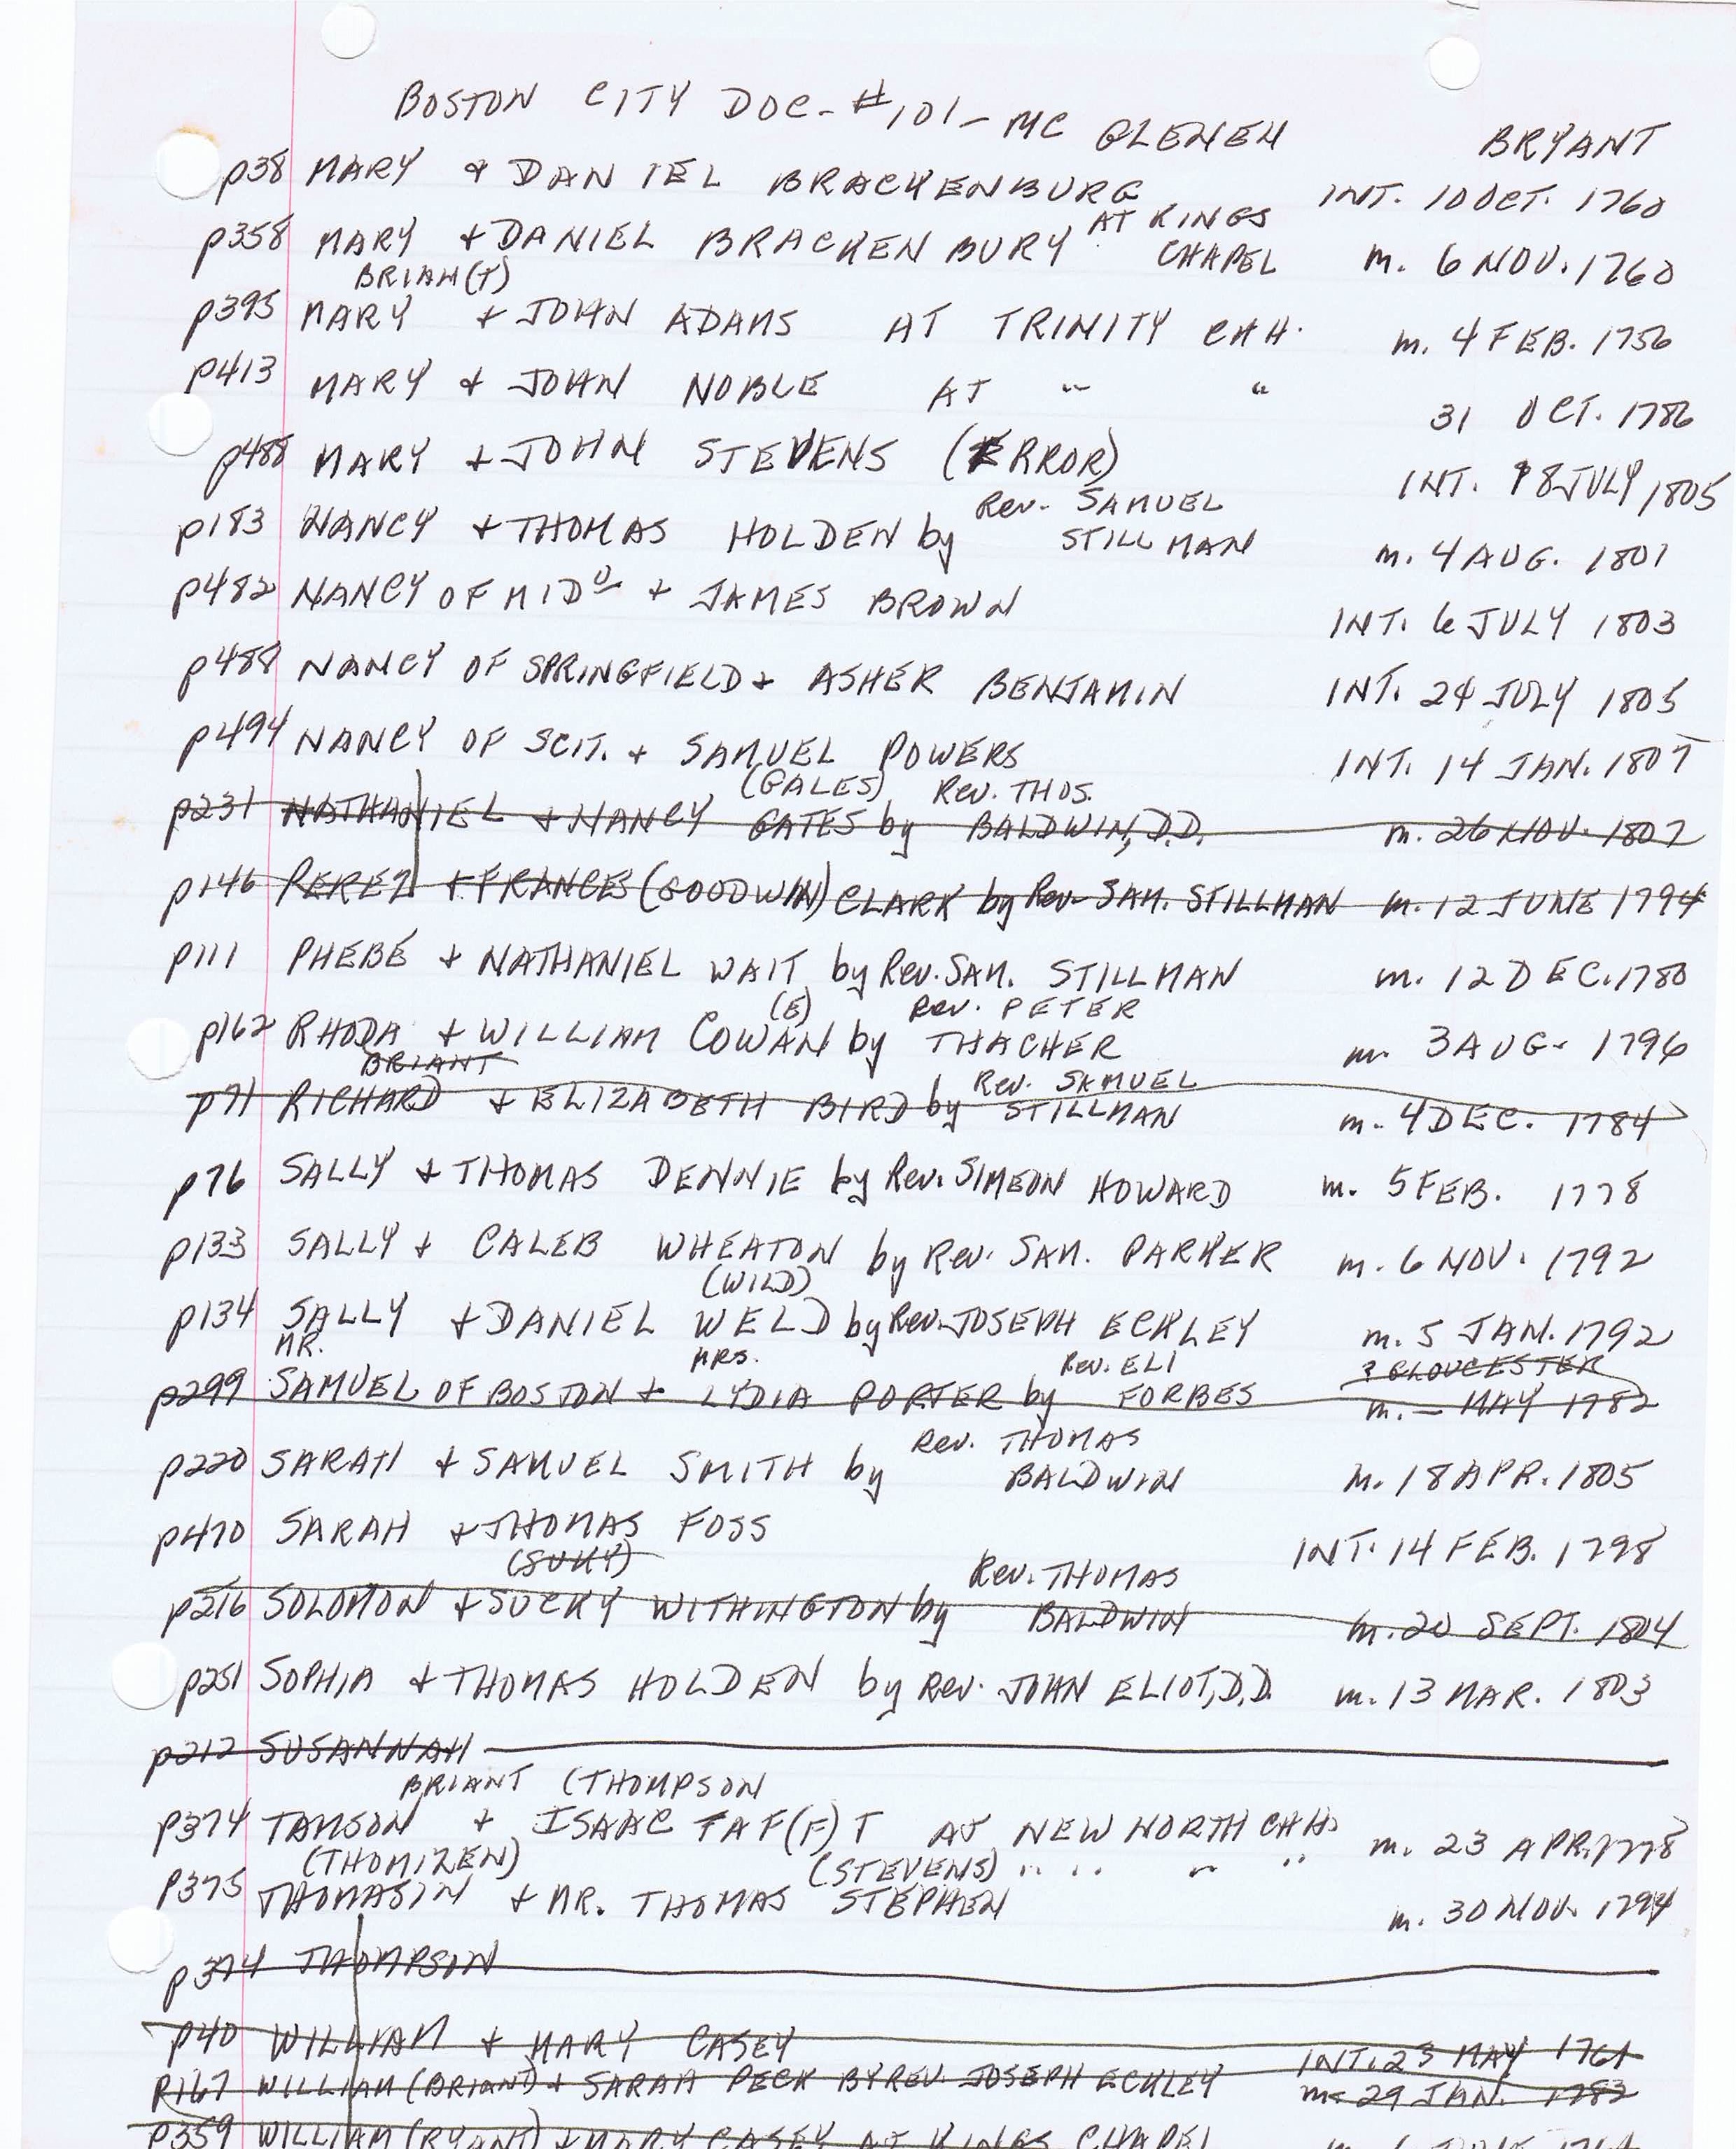 BOSTON CITY DOC- #101- MC GLENEN BRYANT
p38 MARY & DANIEL BRACKENBURG INT. 10 OCT. 1760
p358 MARY & DANIEL BRACKENBURY AT KINGS CHAPEL m. 6 NOV. 1760
BRIAN(T)
p395 MARY & JOHN ADAMS AT TRINITY CHH. m. 4 FEB. 1756
p413 MARY & JOHN NOBLE AT " " 31 OCT. 1786
p488 MARY & JOHN STEVENS (ERROR) INT. 8 JULY 1805
Rev. SAMUEL
p183 NANCY & THOMAS HOLDEN by STILLMAN m. 4 AUG. 1801
p482 NANCY OF MID & JAMES BROWN INT. 6 JULY 1803
p488 NANCY OF SPRINGFIELD & ASHER BENJAMIN INT. 24 JULY 1805
p494 NANCY OF SCIT. & SAMUEL POWERS INT. 14 JAN. 1807
(GALES) Rev. THOS.
p231 NATHANIEL & NANCY GATES by BALDWIN, D.D. m. 26 NOV. 1807
p146 PEREZ & FRANCES (GOODWIN) CLARK by Rev. SAM. STILLMAN m. 12 JUNE 1794
p111 PHEBE & NATHANIEL WAIT by Rev. SAM. STILLMAN m. 12 DEC. 1780
(E) Rev. PETER
p162 RHODA & WILLIAM COWAN by THACHER m. 3 AUG. 1796
BRIANT Rev. SAMUEL
p71 RICHARD & ELIZABETH BIRD by STILLMAN m. 4 DEC. 1784
p76 SALLY & THOMAS DENNIE by Rev. SIMEON HOWARD m. 5 FEB. 1778
p133 SALLY & CALEB WHEATON by Rev. SAM. PARKER m. 6 NOV. 1792
(WILD)
p134 SALLY & DANIEL WELD by Rev. JOSEPH ECKLEY m. 5 JAN. 1792
MR. MRS. Rev. ELI ? GLOUCESTER
p299 SAMUEL OF BOSTON & LYDIA PORTER by FORBES m. - MAY 1782
Rev. THOMAS
p220 SARAH & SAMUEL SMITH by BALDWIN m. 18 APR. 1805
p470 SARAH & THOMAS FOSS INT. 14 FEB. 1798
(SUKY) Rev. THOMAS
p216 SOLOMON & SUCKY WITHINGTON by BALDWIN m. 20 SEPT. 1804
p251 SOPHIA & THOMAS HOLDEN by Rev. JOHN ELIOT, D.D. m. 13 MAR. 1803
p212 SUSANNAH
BRIANT (THOMPSON
p374 TAMSON & ISAAC TAF(F)T AT NEW NORTH CHH. m. 23 APR. 1778
(THOMIZEN) (STEVENS) " " " "
p375 THOMASIN & MR. THOMAS STEPHEN m. 30 NOV. 1794
p374 THOMPSON
p40 WILLIAM & MARY CASEY INT. 23 MAY 1761
P167 WILLIAM (BRIANT) & SARAH PECK BY REV. JOSEPH ECKLEY m. 29 JAN. 1783
p359 WILLIAM (RYANT) & MARY CASEY AT KINGS CHAPEL